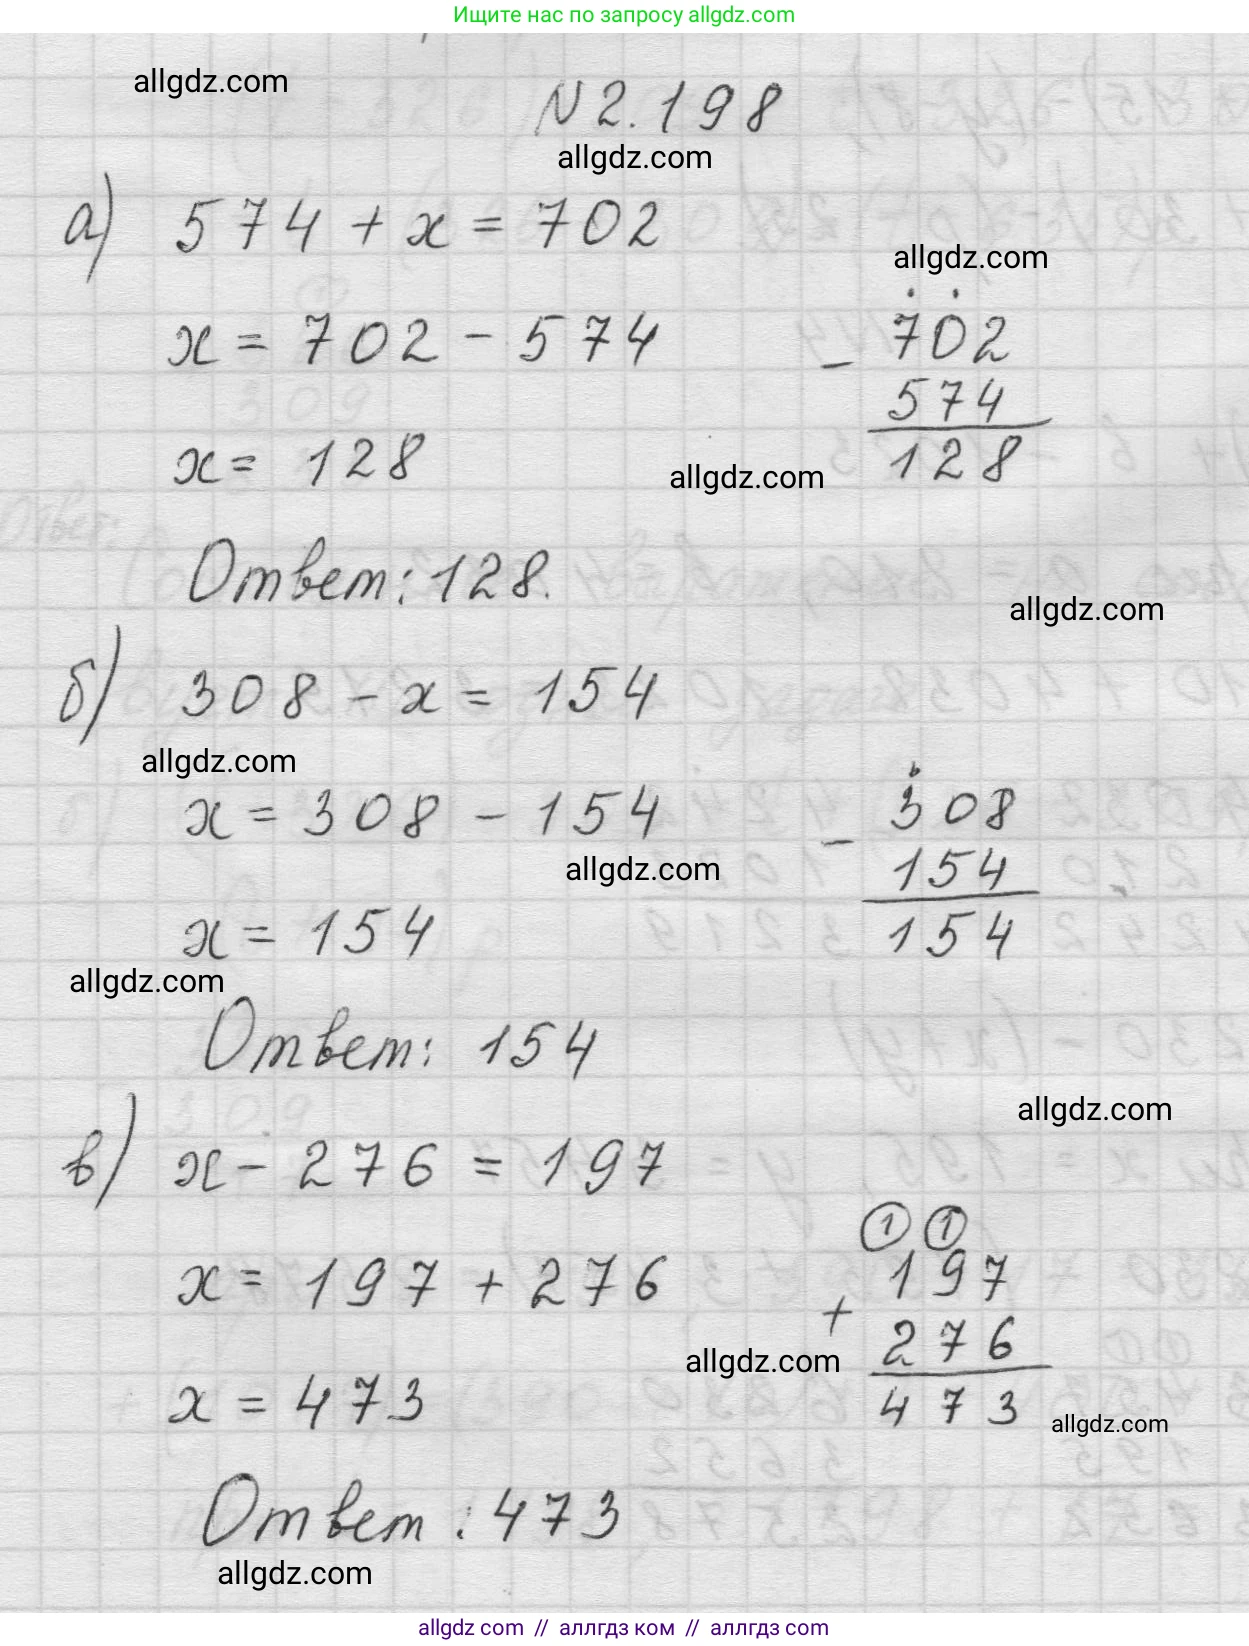 Ищите нас по запросу allgdz.com
allgdz.com
N 2.198
allgdz.com
а) 574 + x = 702
allgdz.com
x = 702 - 574
702
- 574
128
x = 128
allgdz.com
Ответ: 128.
allgdz.com
б) 308 - x = 154
allgdz.com
x = 308 - 154
308
- 154
154
allgdz.com
x = 154
allgdz.com
Ответ: 154
allgdz.com
в) x - 276 = 197
x = 197 + 276
1 1
197
+ 276
473
allgdz.com
x = 473
allgdz.com
Ответ: 473
allgdz.com
allgdz.com // аллгдз ком // аллгдз com